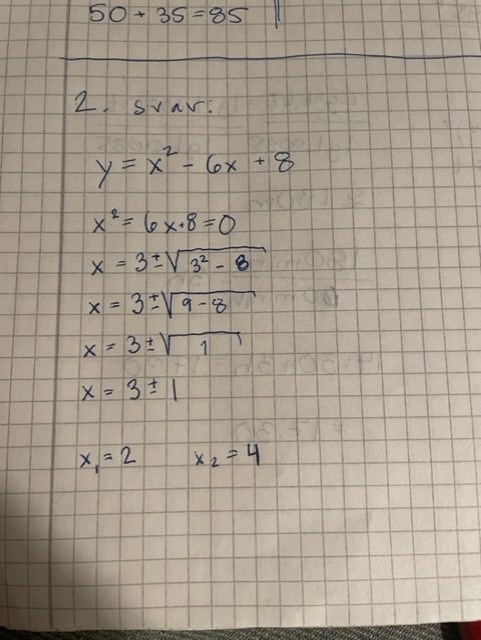 50 + 35 = 85
2. svar:
y = x² - 6x + 8
x² = 6x + 8 = 0
x = 3 ± √3² - 8
x = 3 ± √9 - 8
x = 3 ± √1
x = 3 ± 1
x₁ = 2 x₂ = 4